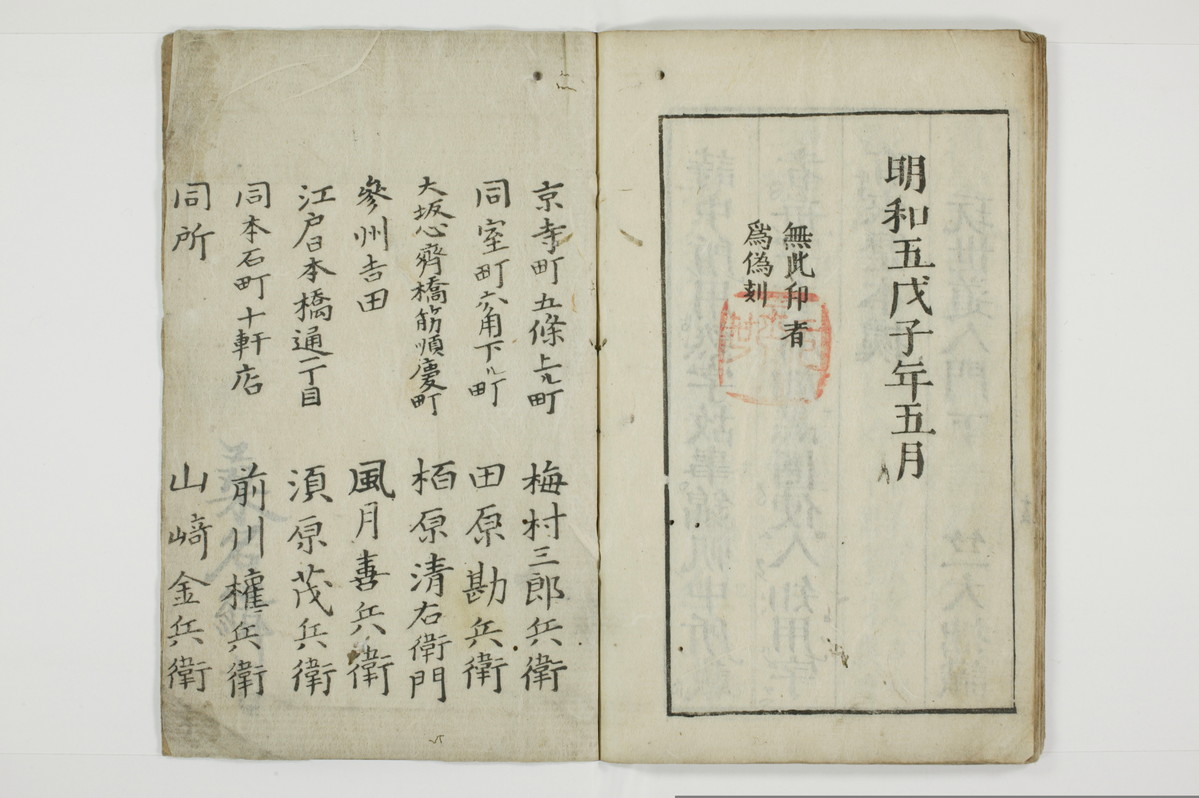 明和五戊子年五月
無此印者
爲偽刻
京寺町五條上ル町 梅村三郎兵衛
同室町六角下ル町 田原勘兵衛
大坂心齊橋筋順慶町 栢原清右衛門
參州吉田 風月善兵衛
江戸日本橋通一丁目 須原茂兵衛
同本石町十軒店 前川權兵衛
同所 山﨑金兵衛